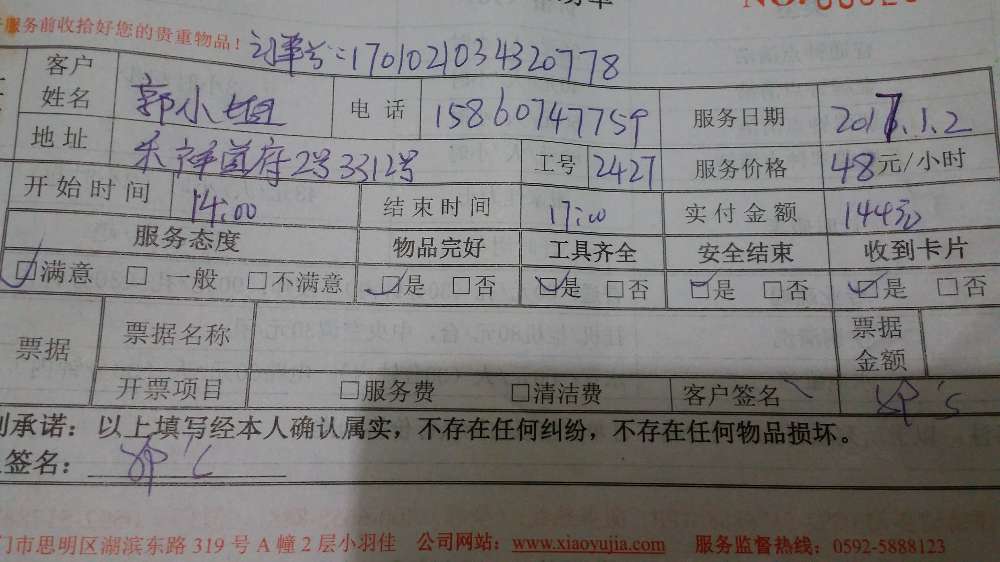 服务前收拾好您的贵重物品!
订单号:1701021034320778
客户姓名 郭小姐 电话 15860747759 服务日期 2017.1.2
地址 禾祥道府2号3312号 工号 2427 服务价格 48元/小时
开始时间 14:00 结束时间 17:00 实付金额 144元
服务态度 物品完好 工具齐全 安全结束 收到卡片
☑满意 □一般 □不满意 ☑是 □否 ☑是 □否 ☑是 □否 ☑是 □否
票据 票据名称 票据金额
开票项目 □服务费 □清洁费 客户签名
承诺:以上填写经本人确认属实,不存在任何纠纷,不存在任何物品损坏。
签名:
门市思明区湖滨东路 319 号 A 幢 2 层小羽佳 公司网站:www.xiaoyujia.com 服务监督热线:0592-5888123